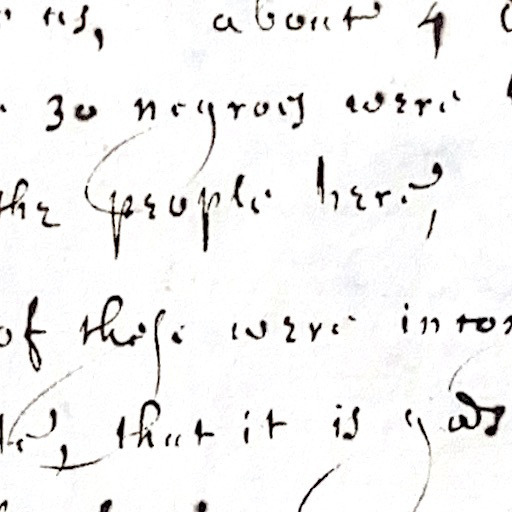 us, about 4
30 negroes were
the people here,
of these were
that it is gods